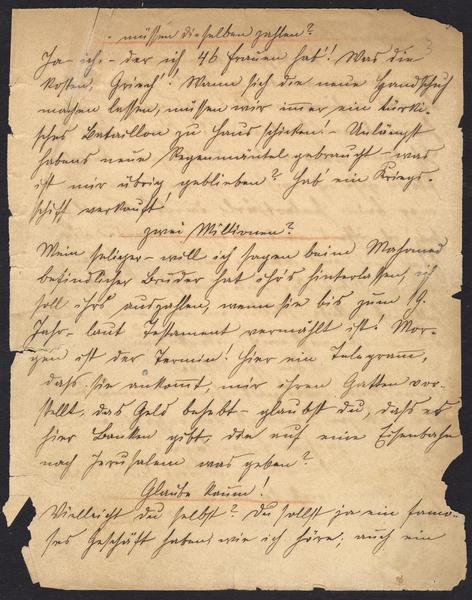 - müssen dieselben zahlen?
Ja ich, - der ich 46 Frauen hat! Was die
kosten, Griech'! Wann sich die neue Handschuh
machen lassen, müssen wir immer ein türki-
sches Bataillon zu Haus schicken! - Unlängst
habens neue Regenmäntel gebraucht - was
ist mir übrig geblieben? Hab' ein Kriegs-
schiff verkauft!
zwei Millionen?
Mein seliger - woll ich sagen beim Mahomed
befindlicher Bruder hat ihrs hinterlassen, ich
soll ihrs auszahlen, wenn sie bis zum 19.
Jahr - laut Testament vermählt ist! Mor-
gen ist der Termin! Hier ein Telegram,
dass sie ankomt, mir ihren Gatten vor-
stellt, das Geld behebt - glaubst du, dass es
hier Banken gibt, die auf eine Eisenbahn
nach Jerusalem was geben?
Glaube kaum!
Vielleicht du selbst? Du sollst ja ein famo-
ses Geschäft haben, wie ich höre; auch ein